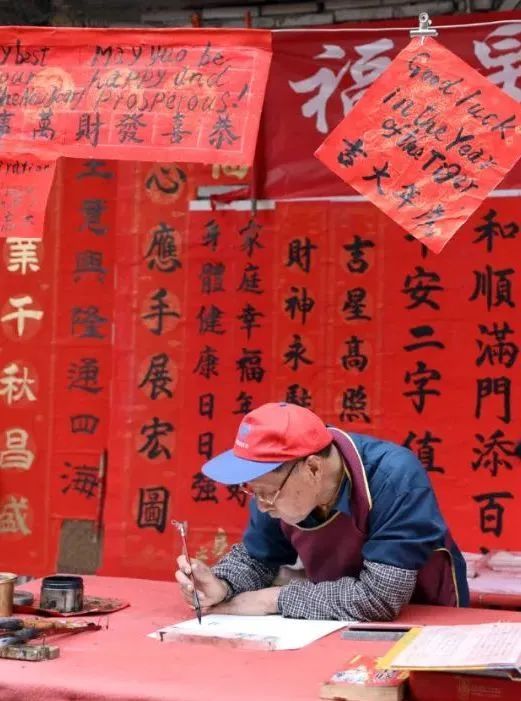 y best
our
he New Year
May yuo be
happy and
prosperous!
恭喜發財萬事
Good luck
in the Year
of the Tiger
虎年大吉
福
和順滿門添百
安二字值
吉星高照
財神永
家庭幸福年
身體健康日日強
心應手展宏圖
意興隆通四海
業千秋昌盛